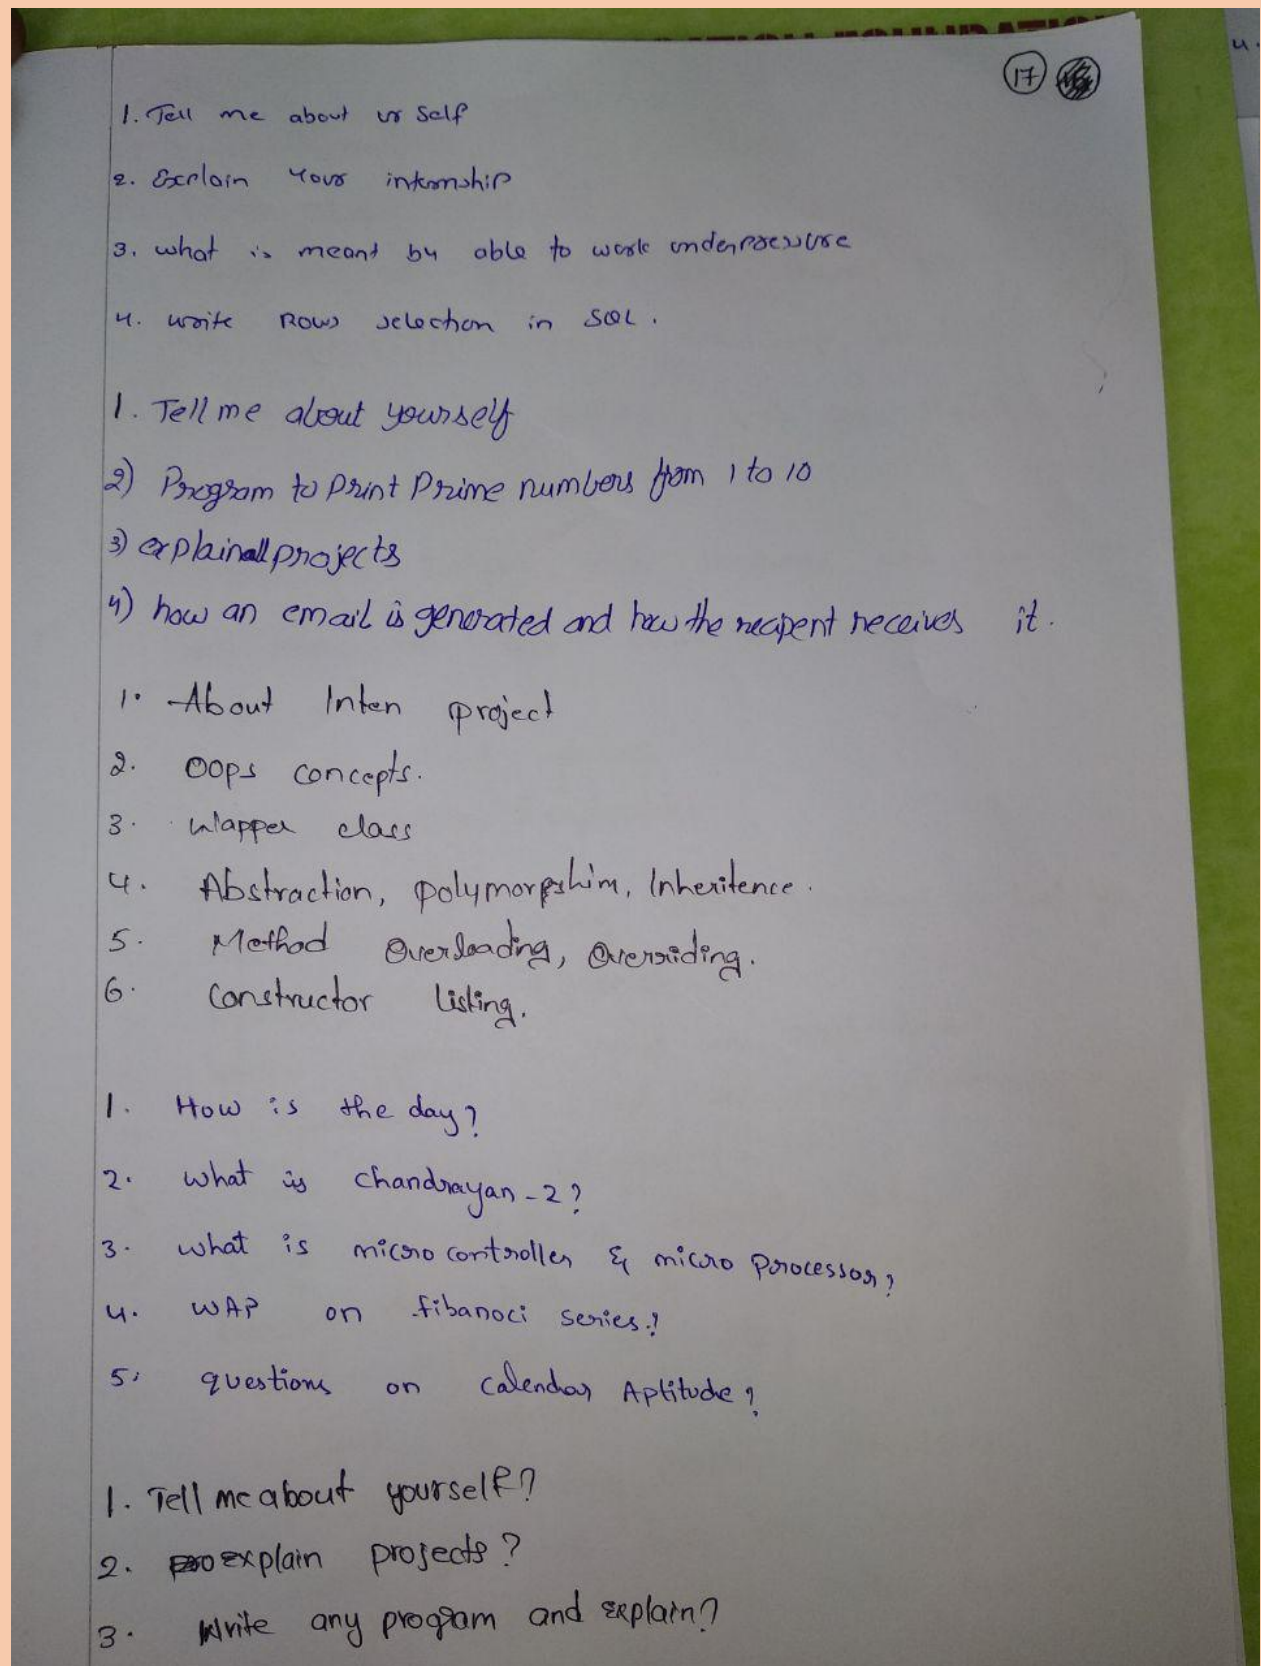 17
1. Tell me about ur Self
2. Explain Your internship
3. what is meant by able to work underpressure
4. write Rows selection in SQL.
1. Tell me about yourself
2) Program to print Prime numbers from 1 to 10
3) explain all projects
4) how an email is generated and how the recipent receives it.
1. About Inten project
2. OOps concepts.
3. Wapper class
4. Abstraction, polymorpshim, Inheritence.
5. Method Overloading, Overriding.
6. Constructor Listing.
1. How is the day?
2. what is chandrayan-2?
3. what is micro controller & micro processor?
4. WAP on fibanoci series.?
5. questions on Calendar Aptitude?
1. Tell me about yourself?
2. explain projects?
3. Write any program and explain?